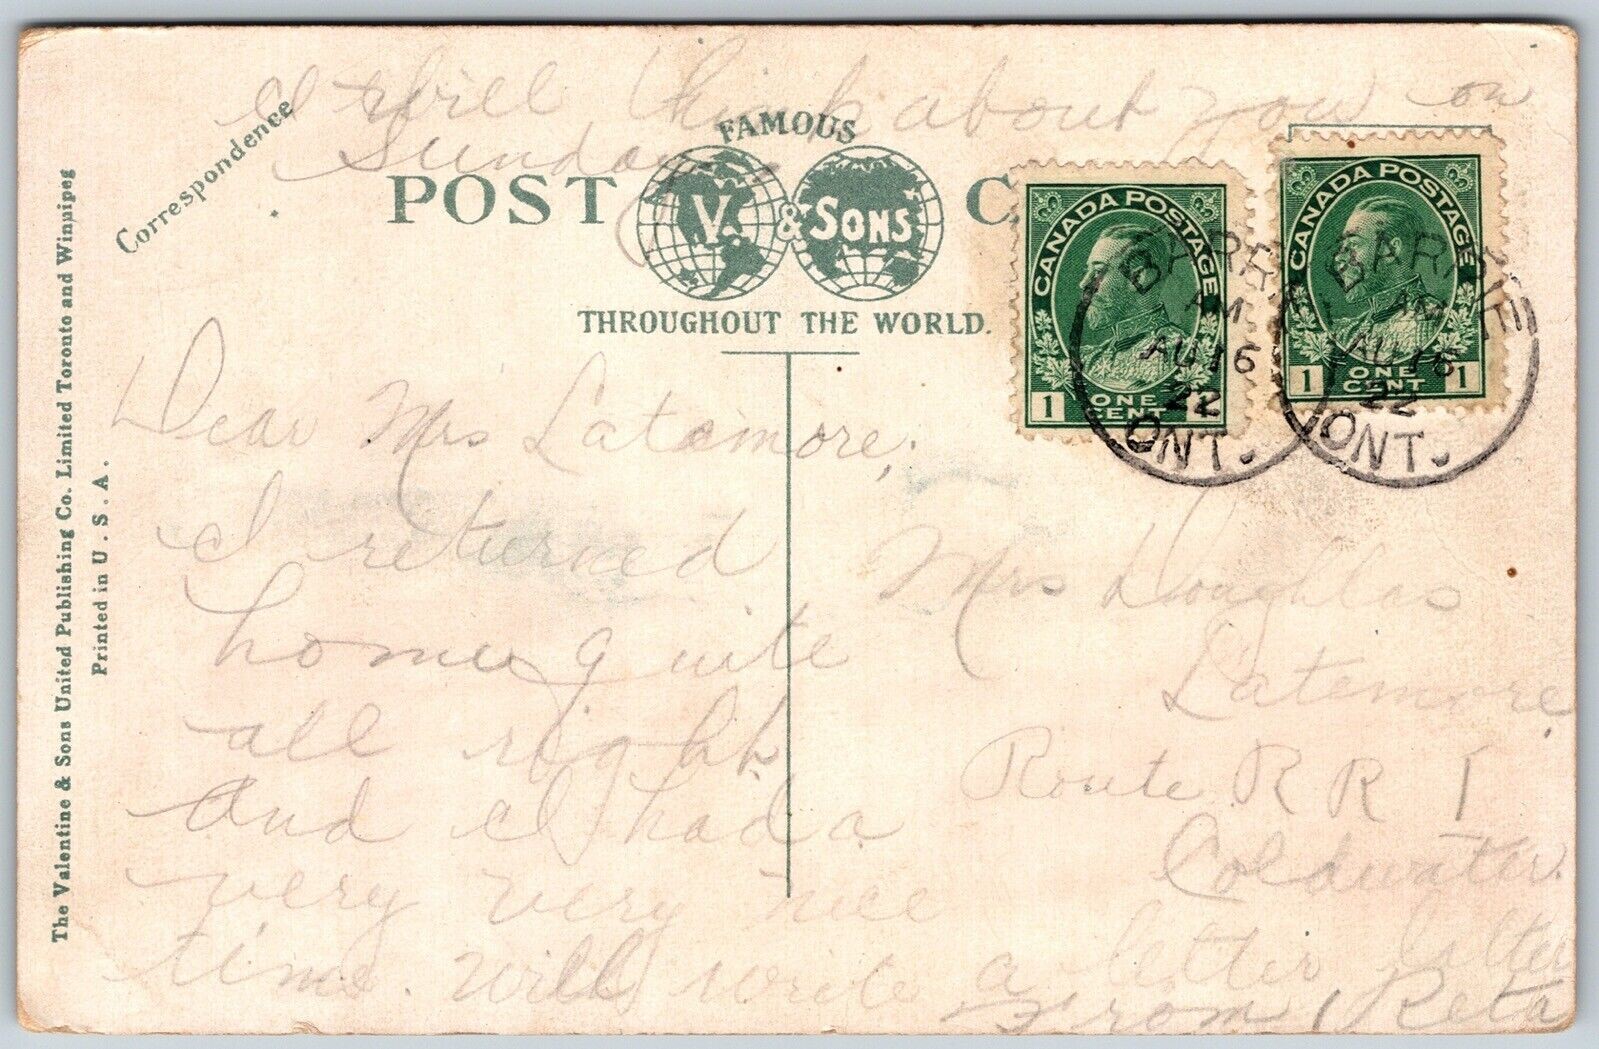 I will think about you on
Sunday
Correspondence
FAMOUS
POST C
V. & SONS
THROUGHOUT THE WORLD.
CANADA POSTAGE
1 ONE CENT 1
CANADA POSTAGE
1 ONE CENT 1
BARRIE
AM
AU 16
22
ONT.
BARRIE
AM
AU 16
22
ONT.
The Valentine & Sons United Publishing Co. Limited Toronto and Winnipeg
Printed in U. S. A.
Dear Mrs Latemore,
I returned
home quite
all right
and I had a
very very nice
time. Will write a letter latter
From Reta
Mrs Doughlas
Latemore,
Route R R 1
Coldwater.